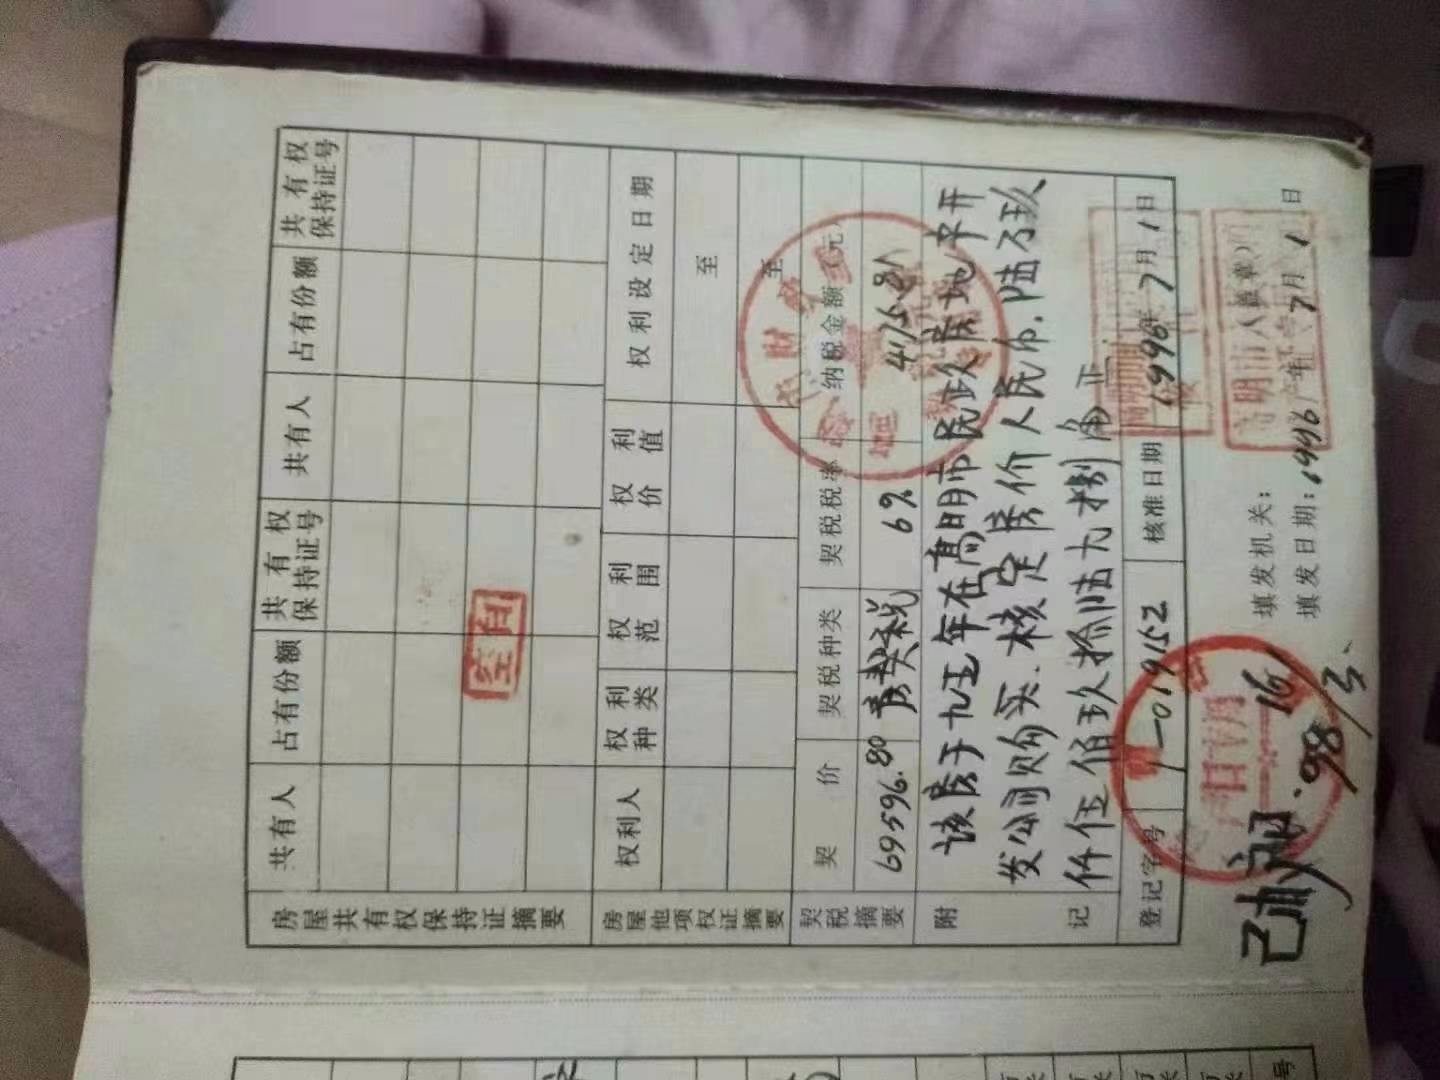 房屋共有权保持证摘要
共有人 占有份额 共有权保持证号 共有人 占有份额 共有权保持证号
房屋他项权证摘要
权利人 权利种类 权利范围 权利价值 权利设定日期
至
至
契税摘要
契价 契税种类 契税税率 纳税金额(元)
69596.80 房契税 6% 4175.81
附记
该房于九五年在高明市民政房地产开
发公司购买.核定房价人民币.陆万玖
仟伍佰玖拾陆元捌角正
登记字号 019152 核准日期 1996年7月1日
填发机关: (盖章)
填发日期: 1996年7月1日
已办
98